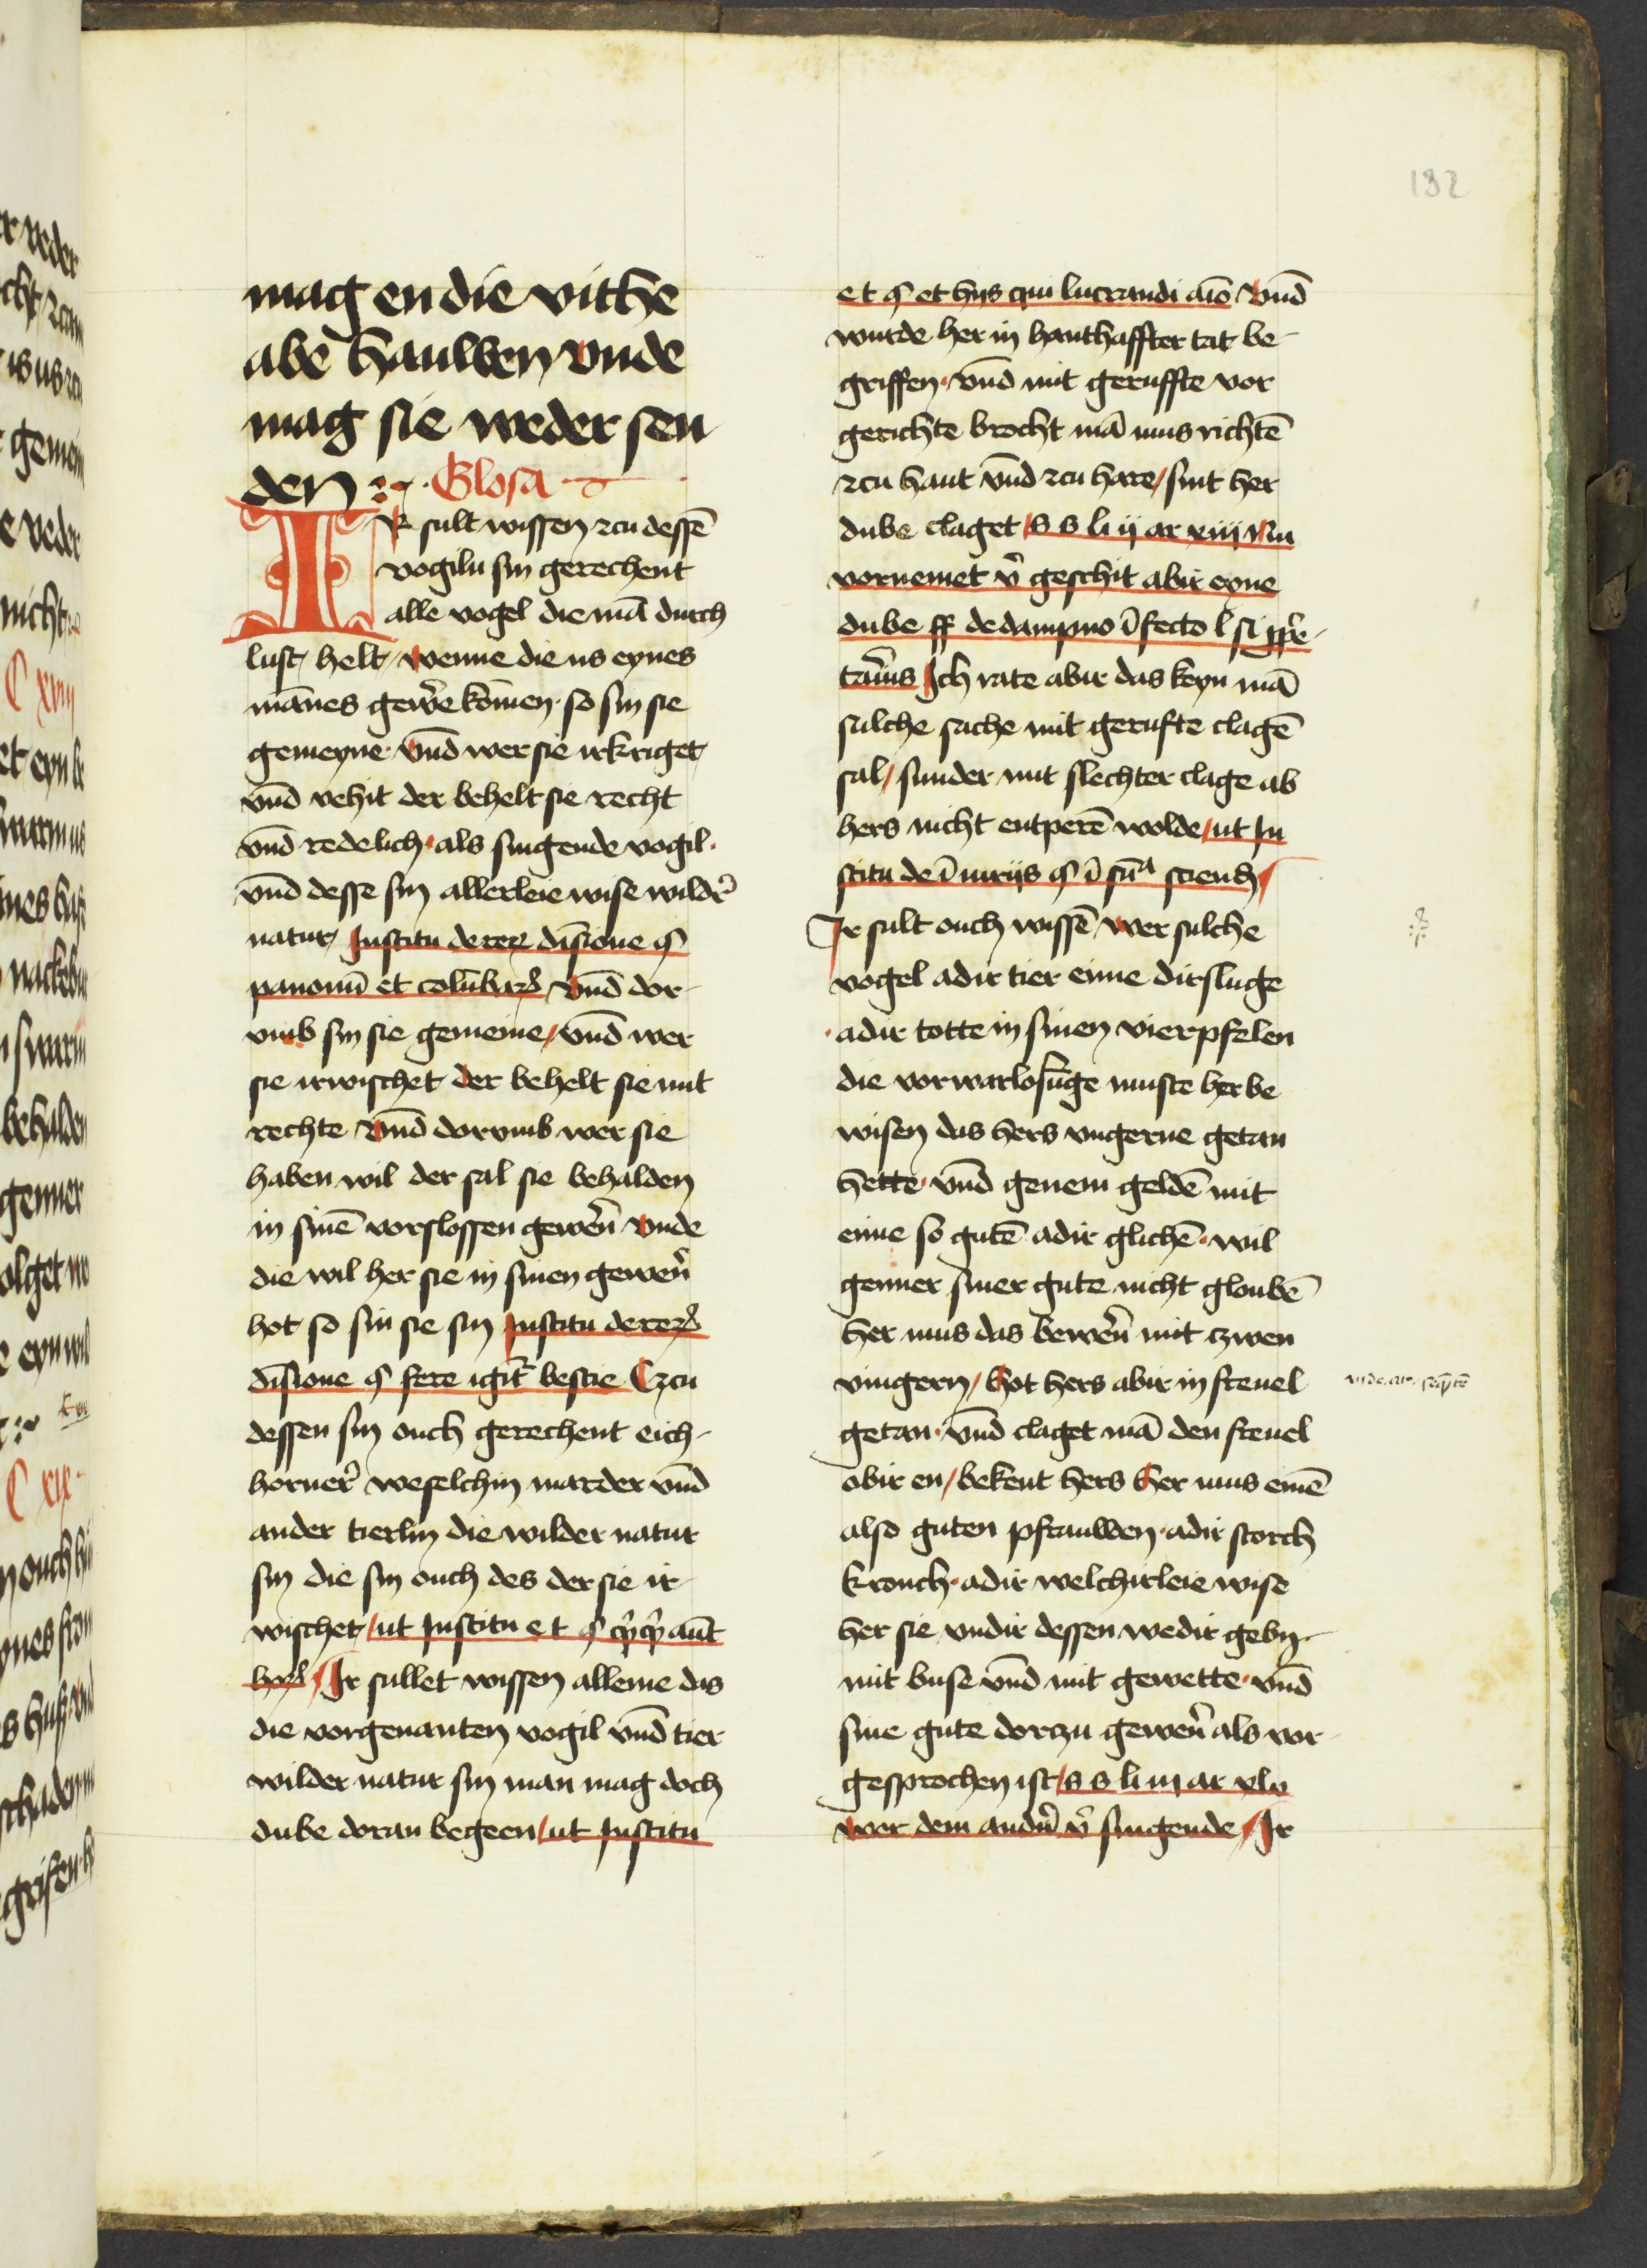 132
mag en die vithe
abe hauwen vnde
mag sie weder sen
den Glosa
IR sult wissen zcu dessē
vogiln sin gerechent
alle vogel die mā durch
lust helt wenne die us eynes
mānes gewe᷑ kōmen so sin sie
gemeyne vnd̄ wer sie irkriget
vnd̄ vehit der behelt sie recht
vnd̄ redelich als singende vogil
vnd̄ desse sin allerleie wise wildr᷑
natur Institu de rerꝝ diuīsione §
panonū et colūbarꝝ vnd̄ dor
vmb sin sie gemeine / vnd̄ wer
sie irwischet der behelt sie mit
rechte vnd̄ dorvmb wer sie
haben wil der sal sie behalden
in sinē vorslossen gewe᷑n vnde
die wil her sie in sinen gewen᷑
hot so sin sie sin Institu de rerꝝ
diuīsione § fere igit᷑ bestie Czcu
dessen sin ouch gerechent eich
horner᷑ weselchin marder vnd̄
ander tierlin die wilder natur
sin die sin ouch des der sie ir
wischet / ut Institu e t §
Ir sullet wissen alleine das
die vorgenanten vogil vnd̄ tier
wilder natur sin man mag doch
dube doran begeen / ut Institu
et § et hijs qui lucrandi aīo vnd̄
wurde her in hanthaffter tat be
griffen vnd̄ mit geruffte vor
gerichte brocht mā mus richtē
zcu haut vnd̄ zcu hare / sint her
dube claget / s s li ij ar xiij Nu
vornemet v᷑ geschit abir eyne
dube ff de dampno īfecto l si ꝓpre
tari᷑us Ich rate abir das keyn mā
sulche sache mit gerufte clagē
sal / sunder mit slechter clage ab
hers nicht entperē wolde / ut In
stitu de īiurijs § ī sūa sciend̄ /
Ir sult ouch wissē wer sulche
vogel adir tier eime dirsluge
adir totte in sinen vierpfelen
die vorwarlosūge muste her be
wisen das hers vngerne getan
hette vnd̄ genem geldē mit
eime so gutē adir glichē wil
genner siner gute nicht gloubē
her mus das bewe᷑n mit czwen
vingern / Hot hers abir in freuel
getan vnd̄ claget mā den freuel
obir en / bekent hers her mus emē
also guten pfauwen adir storch
kronch adir welchirleie wise
her sie vndir dessen wedir gebn
mit buse vnd̄ mit gewette vnd̄
sine gute dorczu gewe᷑n als vor
gesprochen ist / s s li iij ar xlv
wer dem andn᷑ v᷑ singende / Ir